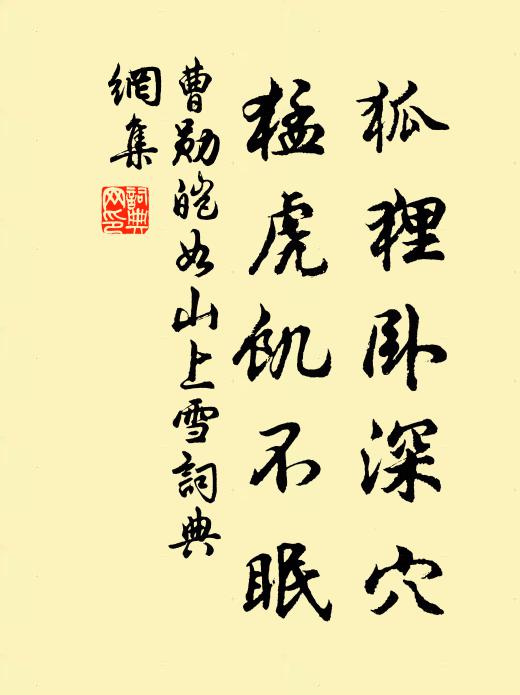 狐狸卧深穴
猛虎飢不眠
曹勛皚如山上雪詞典
網集
詞典
网印